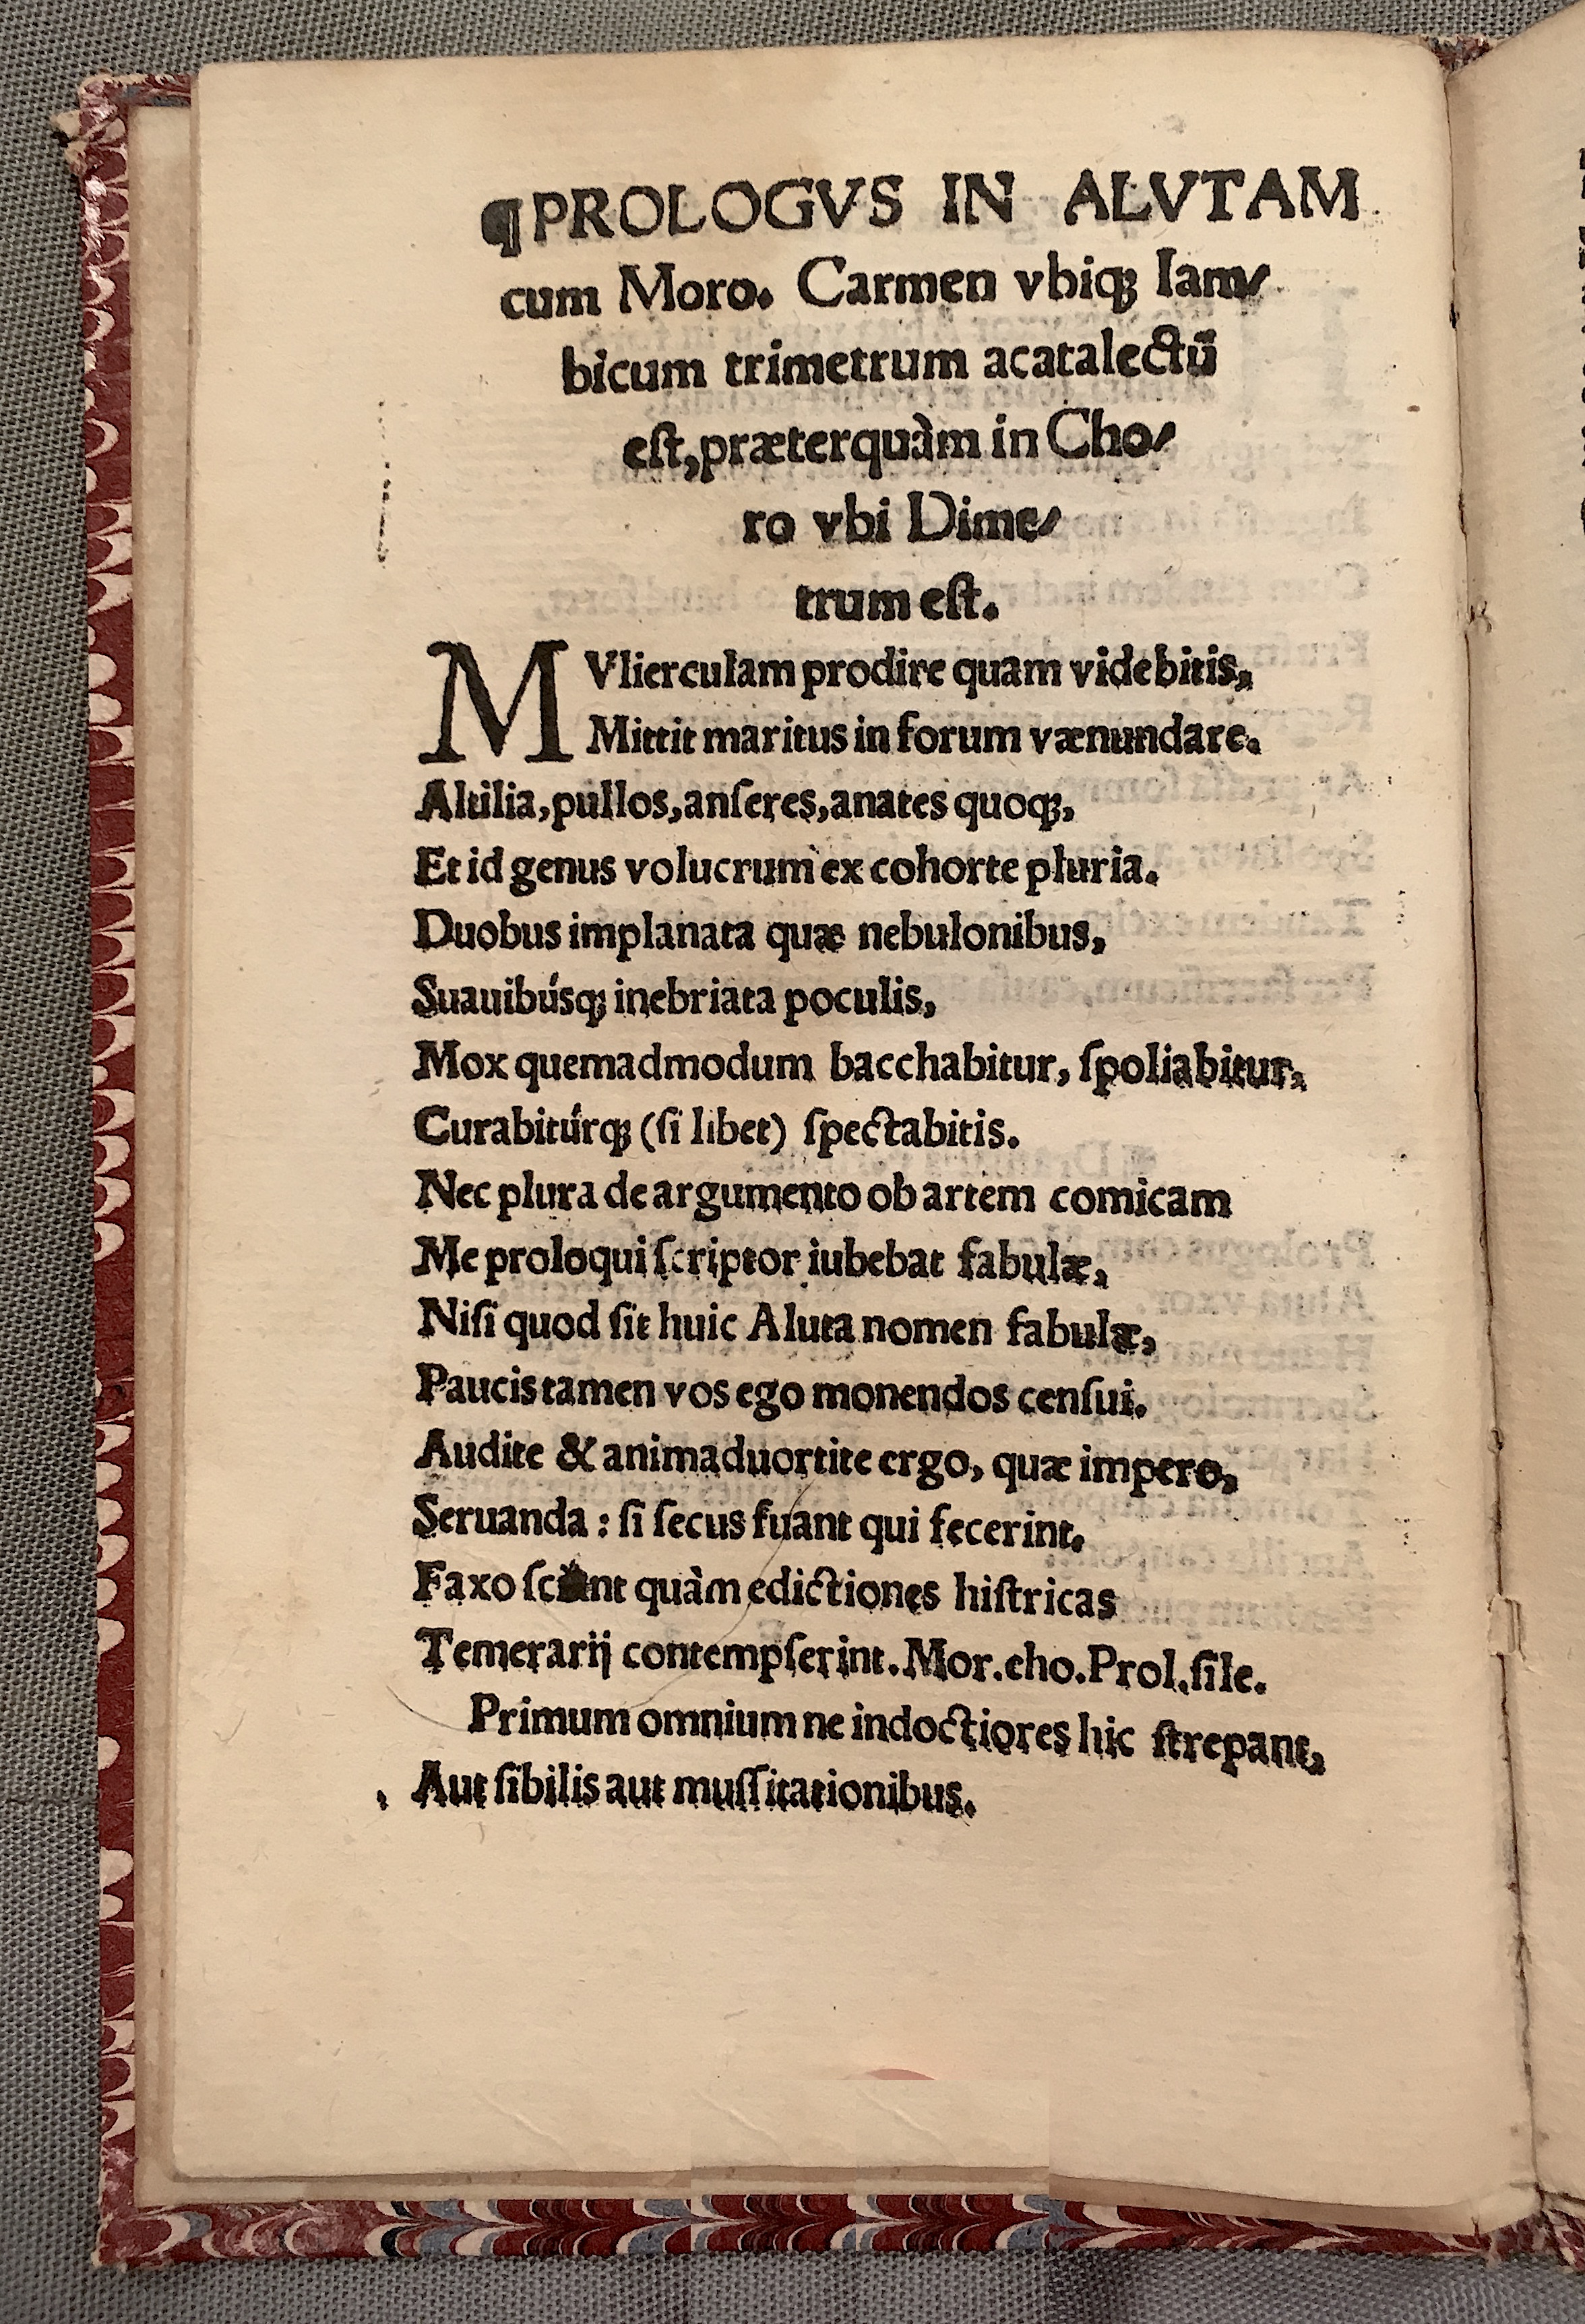 ¶PROLOGVS IN ALVTAM
cum Moro. Carmen vbiqꝫ Iam⸗
bicum trimetrum acatalectū
eſt,præterquàm in Cho⸗
ro vbi Dime⸗
trum eſt.
MVlierculam prodire quam videbitis,
Mittit maritus in forum vænundare.
Altilia,pullos,anſeres,anates quoqꝫ,
Et id genus volucrum ex cohorte pluria.
Duobus implanata quæ nebulonibus,
Suauibúsqꝫ inebriata poculis,
Mox quemadmodum bacchabitur, ſpoliabitur,
Curabitúrqꝫ (ſi libet) ſpectabitis.
Nec plura de argumento ob artem comicam
Me proloqui ſcriptor iubebat fabulæ,
Niſi quod ſit huic Aluta nomen fabulæ,
Paucis tamen vos ego monendos cenſui.
Audite & animaduortite ergo, quæ impero,
Seruanda : ſi ſecus fuant qui fecerint.
Faxo quàm edictiones hiſtricas
Temerarij contempſerint.Mor.eho.Prol.ſile.
Primum omnium ne indoctiores hic ſtrepant,
Aut ſibilis aut muſſitationibus.